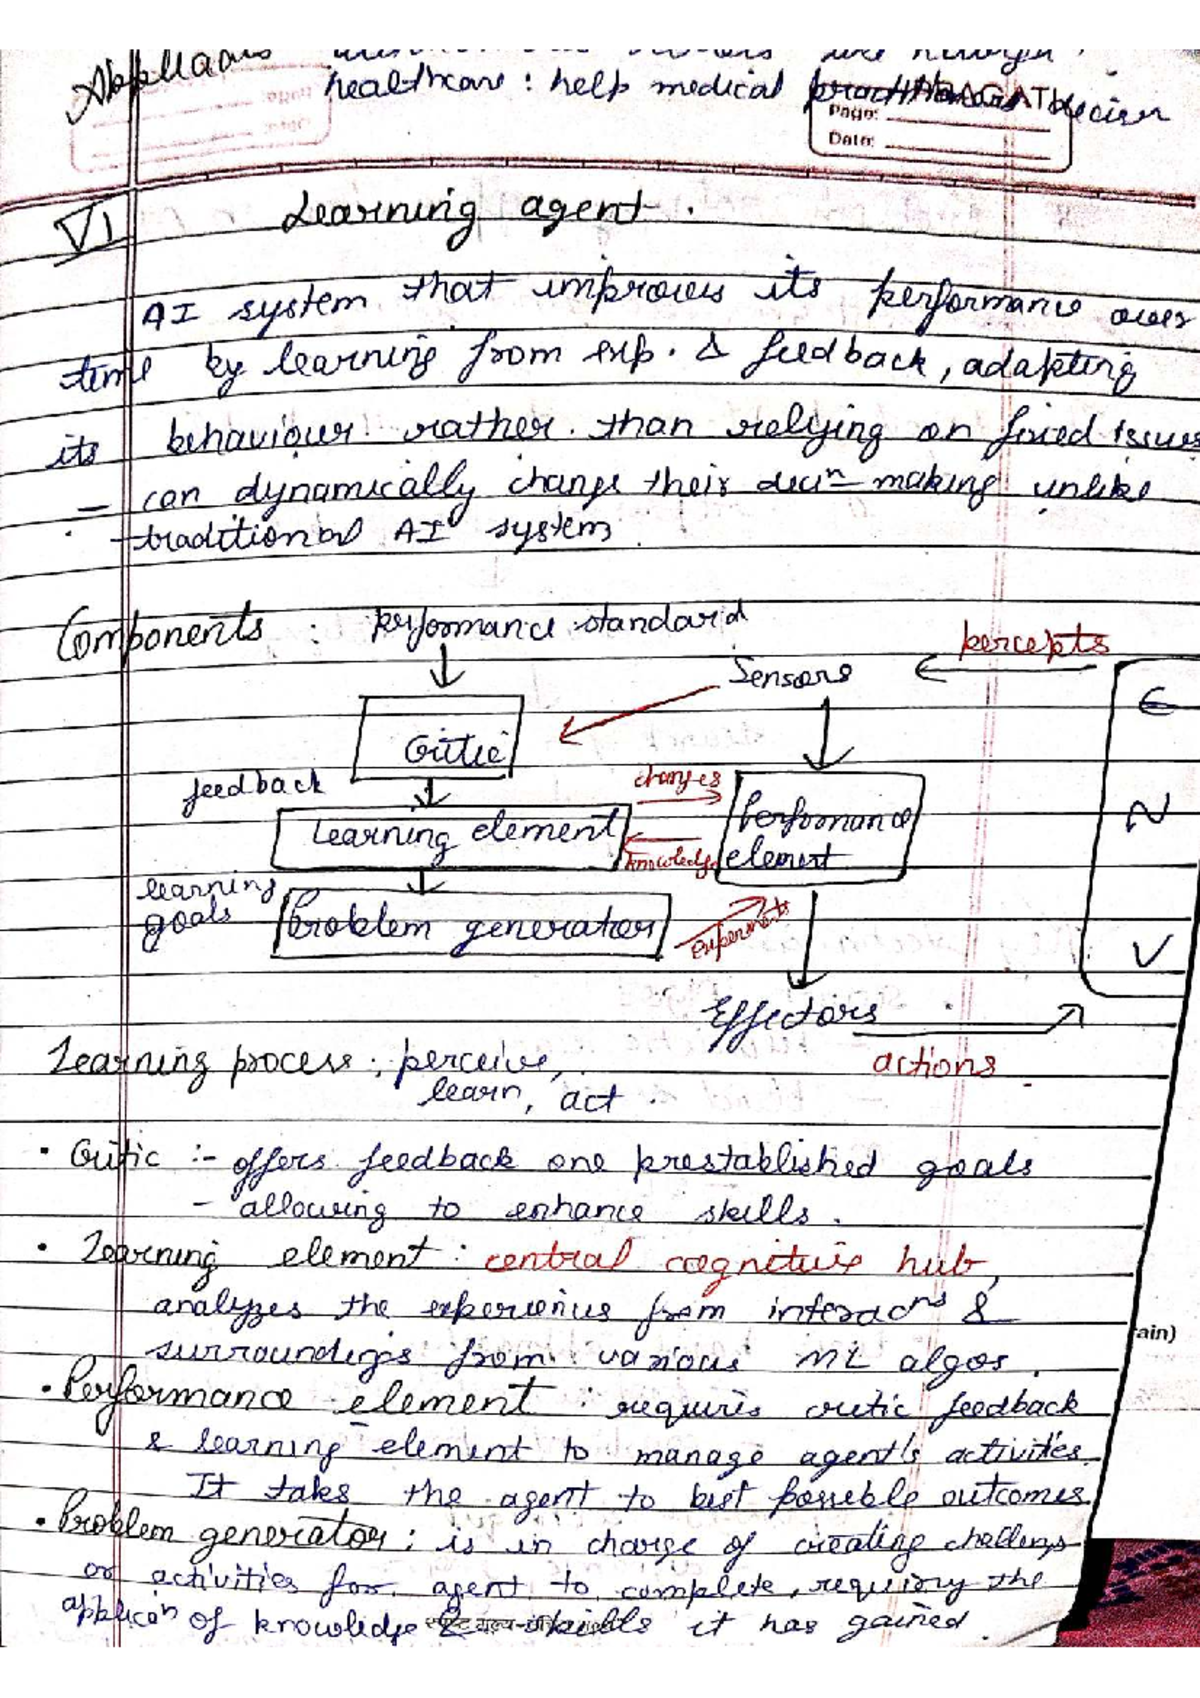 healthcare : help medical decision
PRAGATI
Page:
Date:
VI Learning agent.
AI system that improves its performance over
time by learning from exp. & feedback, adapting
its behaviour rather than relying on fixed issues
- can dynamically change their deciⁿ making unlike
traditional AI system
Components : performance standard
percepts
Sensors
E
Critic
feedback
changes
Learning element
Performance
element
N
knowledge
learning
goals
Problem generator
experiments
V
Effectors
actions
Learning process : perceive,
learn, act.
• Critic :- offers feedback one prestablished goals
- allowing to enhance skills.
• Learning element : central cognitive hub,
analyzes the experiences from interacⁿˢ &
surroundings from various ML algos.
ain)
• Performance element : requires critic feedback
& learning element to manage agent's activities.
It takes the agent to best possible outcomes
• Problem generator : is in charge of creating challengs
or activities for agent to complete, requiring the
applicaⁿ of knowledge & skills it has gained.